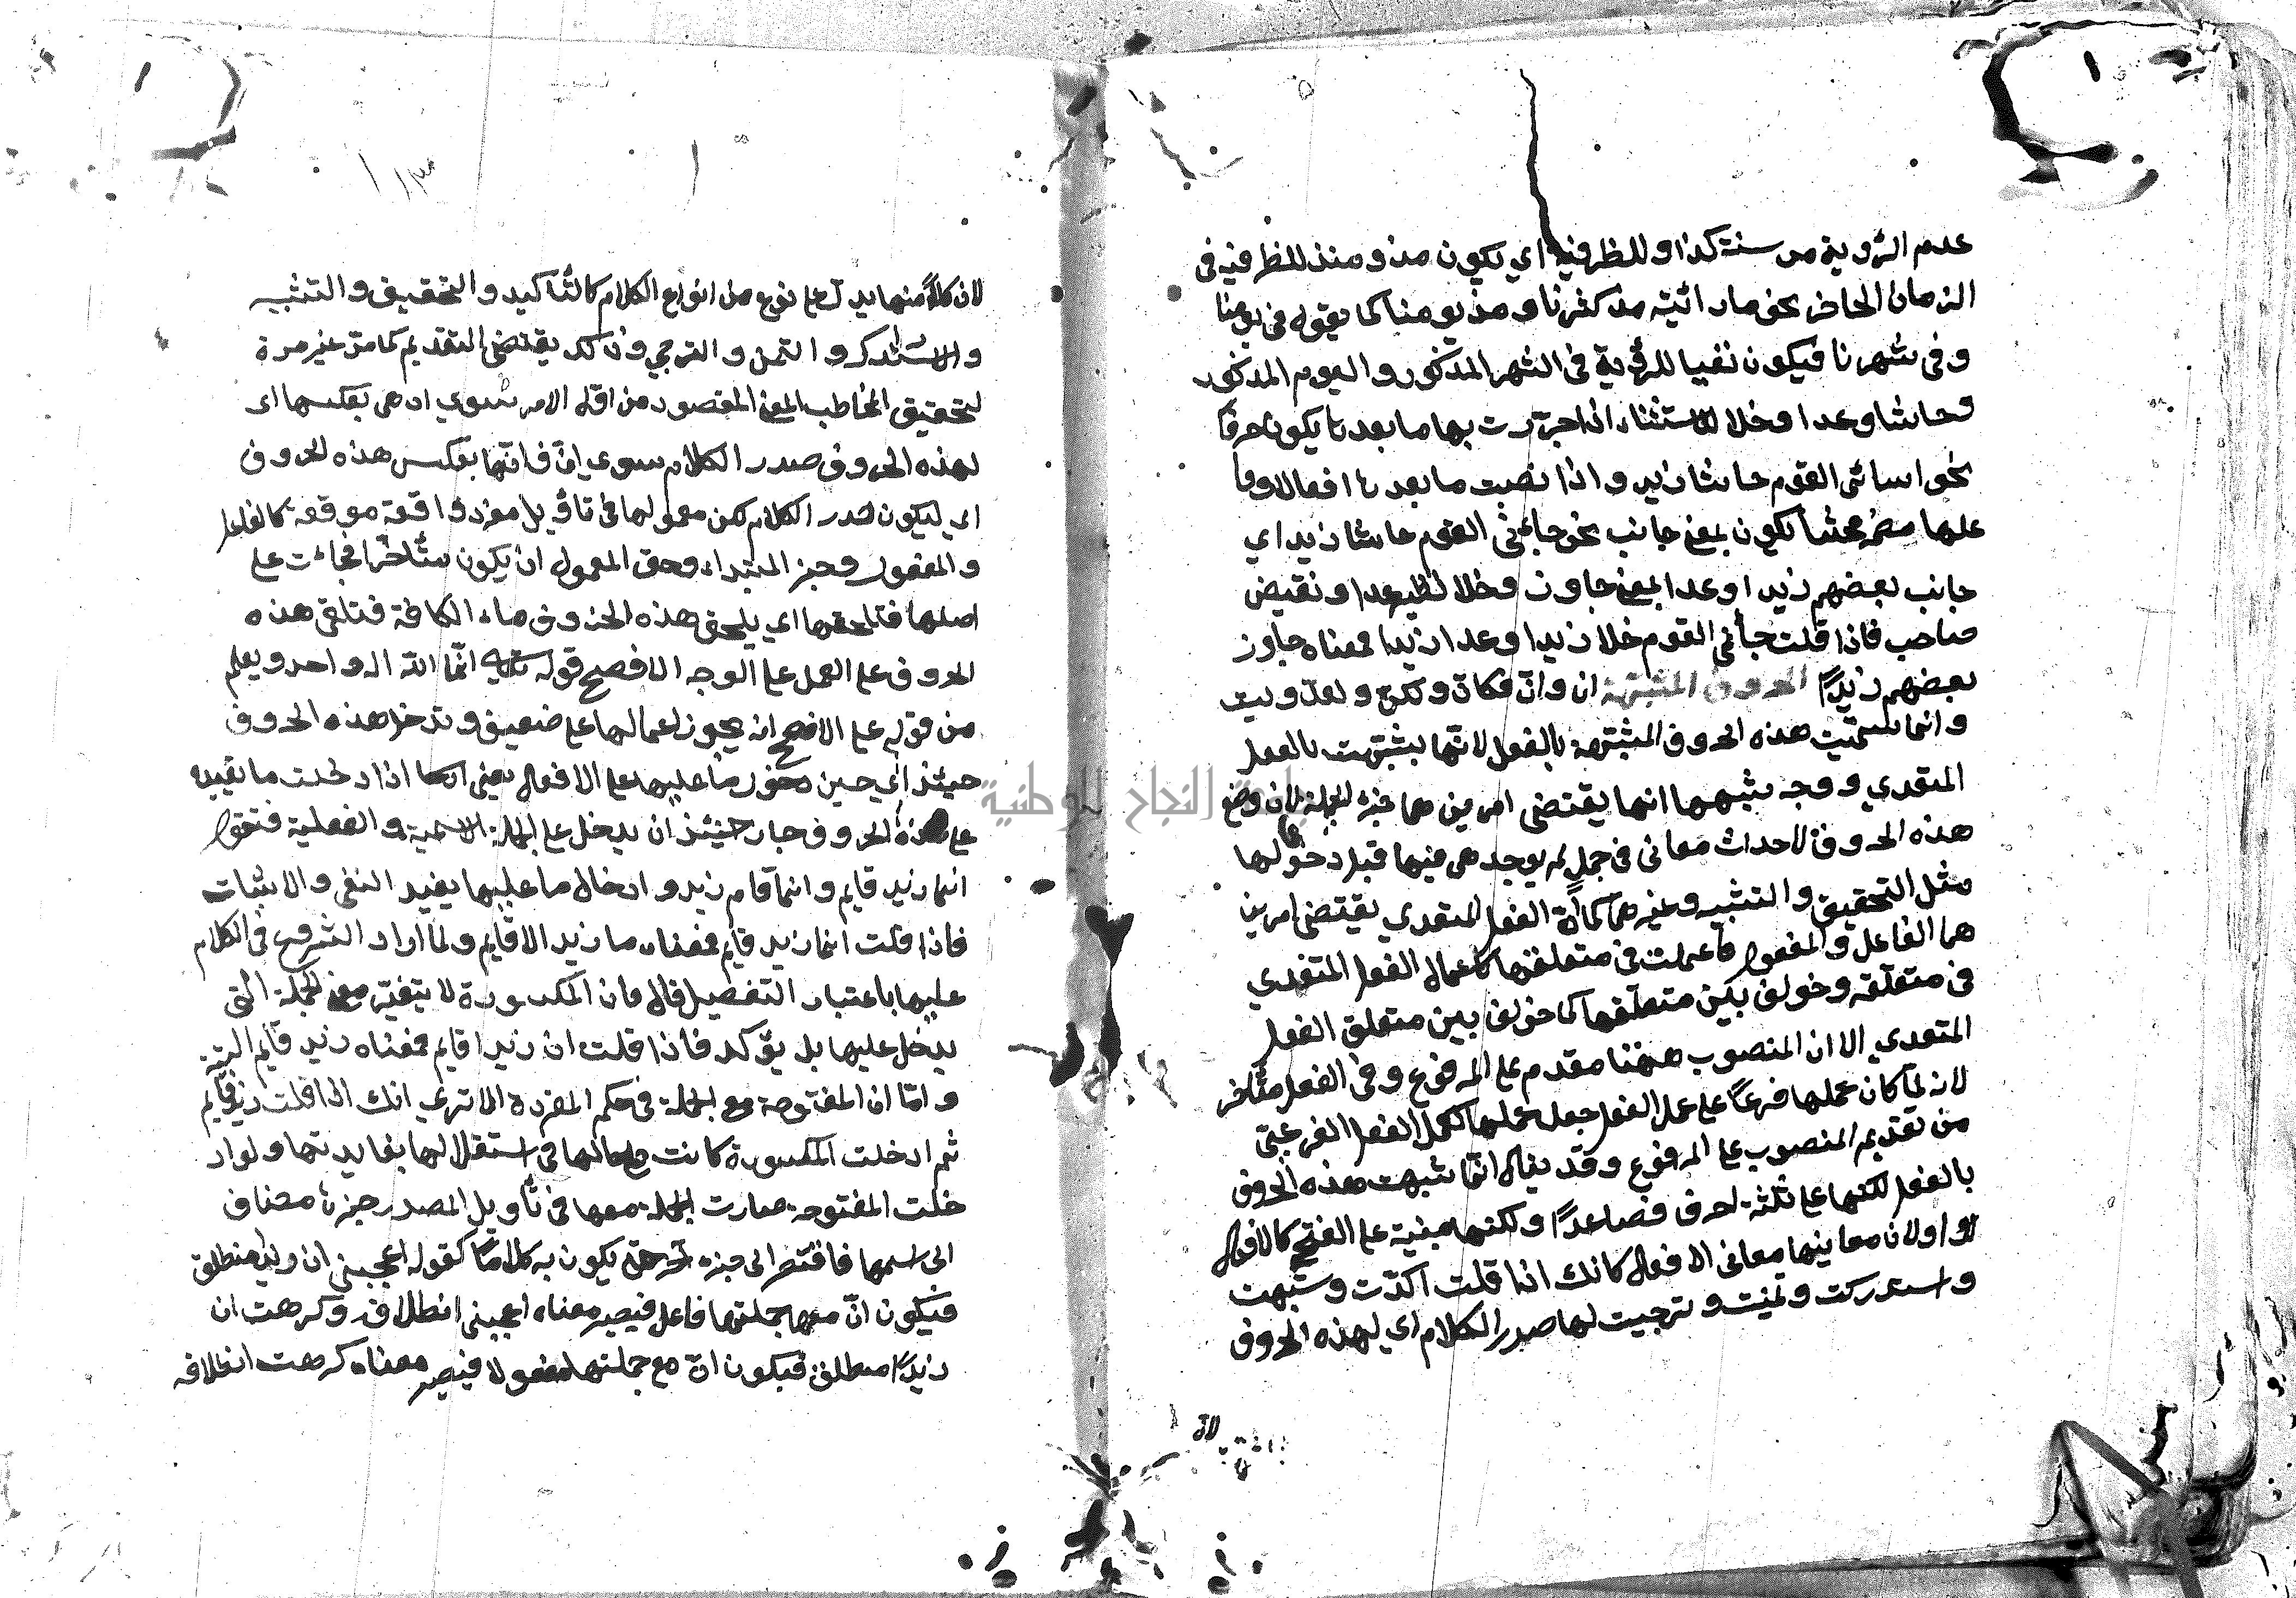 عدم الرؤية من سنة كذا وللظرفية اي يكون مذ ومنذ للظرفية فى
الزمان الحاضر نحو ما رائيته مذ شهرنا ومذ يومنا كما يقول فى يومنا
وفى شهرنا فيكون نفيا للرؤية فى الشهر المذكور واليوم المذكور
وحاشا وعدا وخلا للاستثناء اذا جررت بها ما بعدها يكون حرفا
نحو اسائنى القوم حاشا زيد واذا نصبت ما بعدها افعالا وفا
علها مضمر فحاشا يكون بمعنى جانب نحو جاءنى القوم حاشا زيدا اي
جانب بعضهم زيدا وعدا بمعنى جاوز وخلا نظير عدا ونقيض
صاحب فاذا قلت جأنى القوم خلا زيدا وعدا زيدا فمعناه جاوز
بعضهم زيدًا الحروف المشبهة ان وانّ وكانّ ولكنّ ولعل وليت
وانما سمّيت هذه الحروف المشبّهة بالفعل لانّها يشبّهت بالفعل
المتعدي ووجه شبهها انها يقتضى امرين هما جزء الجملة لان وضع
هذه الحروف لاحداث معانى فى جمل لم يوجد هى فيها قبل دخولها
مثل التحقيق والتشبيه وغيرهما كما أنّ الفعل المتعدي يقتضى امرين
هما الفاعل والمفعول فاعملت فى متعلقها كاعمال الفعل المتعدي
فى متعلّقه وخولف بين متعلّقها كما خولف بين متعلق الفعل
المتعدي الا ان المنصوب ههنا مقدم على المرفوع وفى الفعل متأخر
لانه لما كان عملها فرعًا على عمل الفعل جعل عملها كعمل الفعل الفرعىّ
من تقديم المنصوب على المرفوع وقد يقال انّما شبهت هذه الحروف
بالفعل لكنها على ثلثة احرف فصاعدًا ولكنها مبنية على الفتح كالافعال
ولان معاينها معانى الافعال كانك اذا قلت اكدّت وشبهت
واستدركت وتمنيت وترجيت لها صدر الكلام اي لهذه الحروف
لان
لان كلاًّ منها يدل على نوع من انواع الكلام كالتأكيد والتحقيق والتشبيه
والاستدراك والتمنى والترجي وذلك يقتضى التقديم كما مرّ غير مرة
لتحقيق المخاطب المعنى المقصود من اول الامر سوي ان هى بعكسها اى
لهذه الحروف صدر الكلام سوى انّ فانّها بعكس هذه الحروف
اي ليكون صدر الكلام لكن معمولها فى تأويل مفرد واقعة موقعه كالفاعل
والمفعول وخبر المبتداء وحق المعمول ان يكون متأخرا فجاءت على
اصلها فتلحقها اي يلحق هذه الحروف ماء الكافة فتلقى هذه
الحروف على العمل على الوجه الافصح قوله انّما الله اله واحد ويعلم
من قوله على الافصح انه يجوز اعمالها على ضعيف وتدخل هذه الحروف
حيئذ أي حين دخول ما عليها على الافعال يعنى انها اذا دخلت ما بقيه
على هذه الحروف جاز حينئذ ان يدخل على الجملة الاسمية والفعلية فتقول
انما زيد قايم وانما قام زيد وادخال ما عليها يفيد النفى والاثبات
فاذا قلت انما زيد قايم فمعناه ما زيد الا قايم ولما اراد الشروع فى الكلام
عليها باعتبار التفصيل قال فان المكسورة لا يتغيّر معنى الجملة التى
يدخل عليها بل يؤكد فأذا قلت ان زيدا قايم فمعناه زيد قايم البتة
وامّا ان المفتوحة مع الجملة فى حكم المفرد الا ترى انك اذا قلت زيد قايم
ثم ادخلت المكسورة كانت على حالها فى استقلالها بفايدتها ولو اد
خلت المفتوحة صارت الجملة معها فى تأويل المصدر خبرها مضاف
الى اسمها فافتقر الى جزء آخر حتى يكون به كلاما كقوله اعجبنى ان زيدا منطلق
فيكون انّ معها جملتها فاعل فيصير معناه اعجبنى انطلاقه وكرهت ان
زيدًا منطلق فيكون انّ مع جملتها مفعولا فيصير معناه كرهت انطلاقه
جامعة النجاح الوطنية